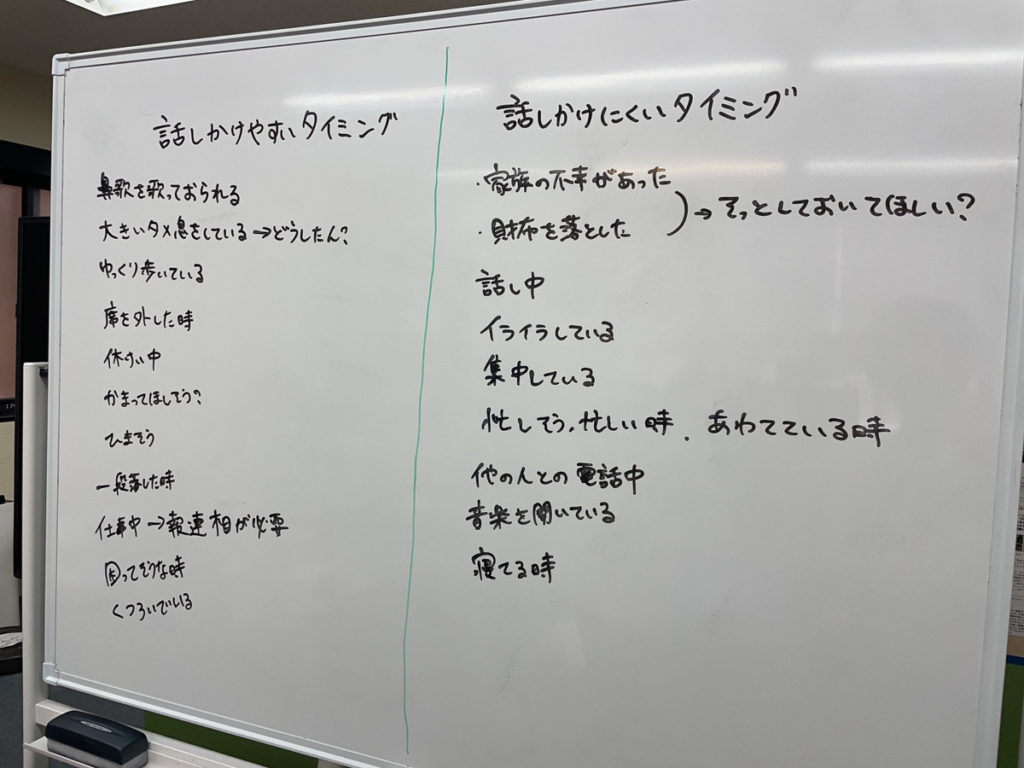 話しかけやすいタイミング
鼻歌を歌っておられる
大きいタメ息をしている→どうしたん?
ゆっくり歩いている
席を外した時
休けい中
かまってほしそう?
ひまそう
一段落した時
仕事中→報連相が必要
困ってそうな時
くつろいでいる
話しかけにくいタイミング
・家族の不幸があった
・財布を落とした
)→そっとしておいてほしい?
話し中
イライラしている
集中している
忙しそう,忙しい時、あわてている時
他の人との電話中
音楽を聞いている
寝てる時